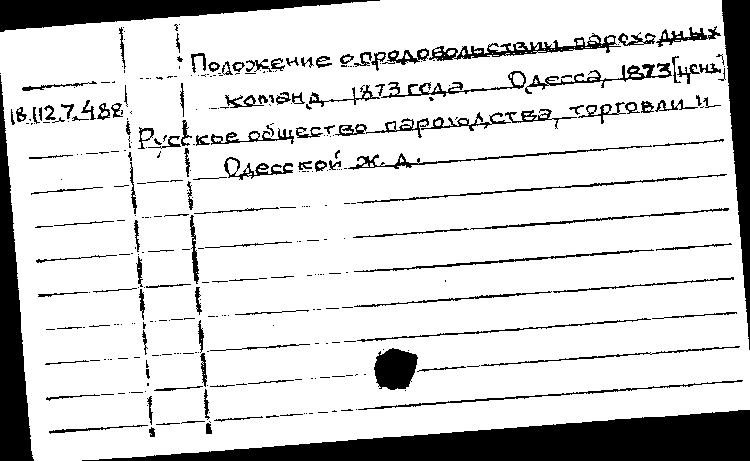 Положение о продовольствии пароходных
команд. 1873 года. Одесса, 1873 [ценз]
18.112.7.488
Русское общество пароходства, торговли и
Одесской ж. д.